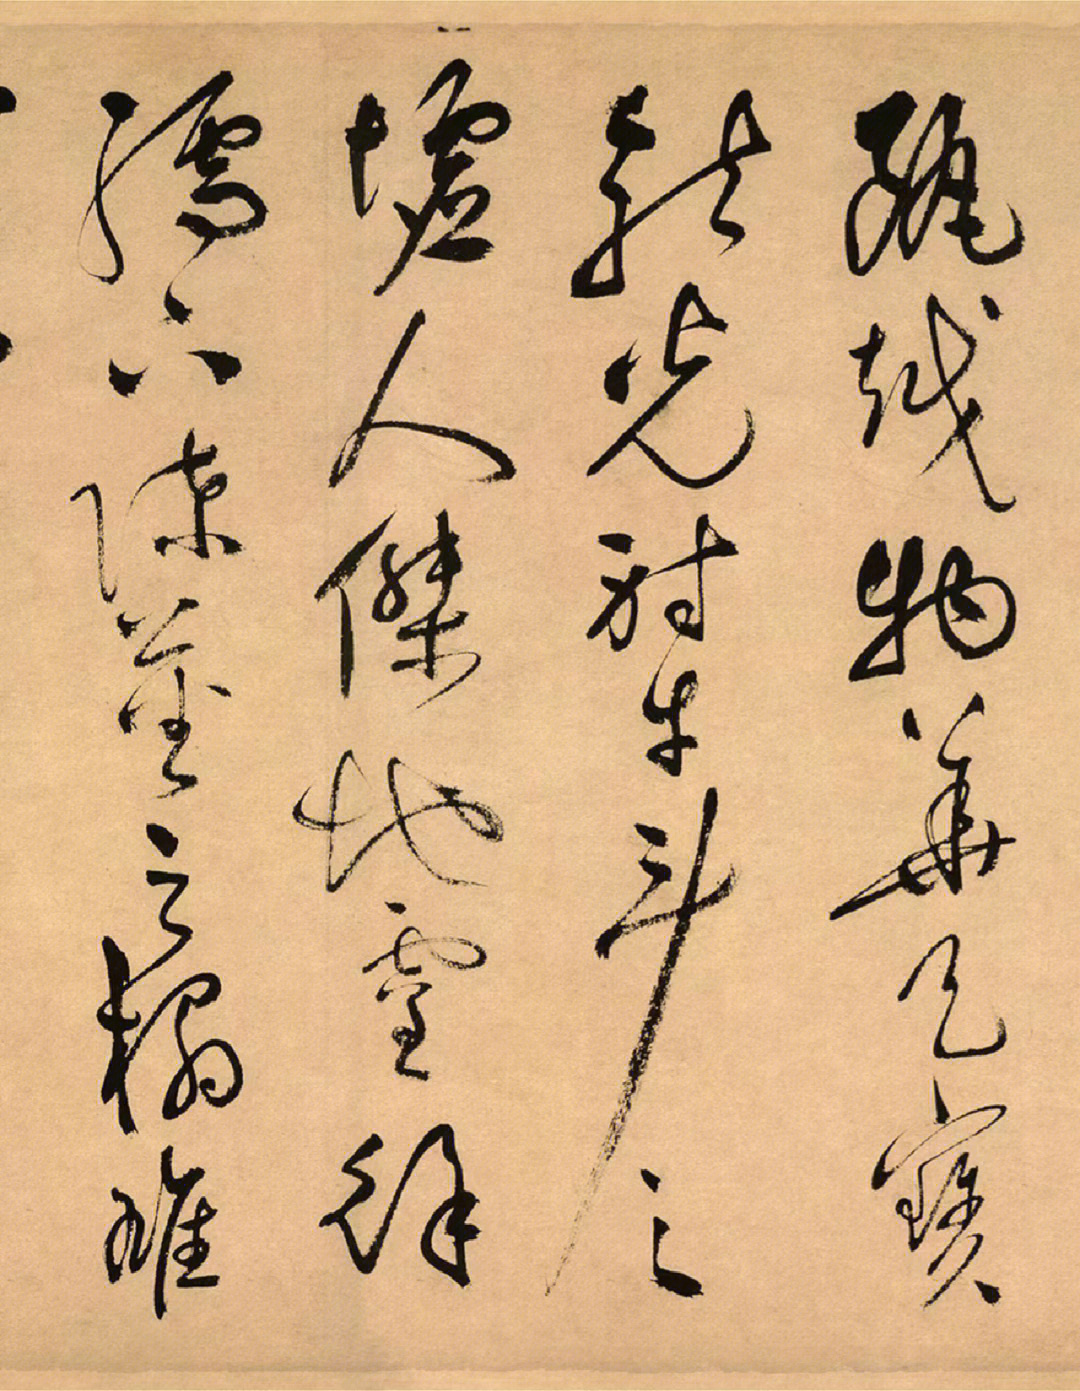 甌越物華天寶
龍光射牛斗之
墟人傑地靈徐
孺下陳蕃之榻雄